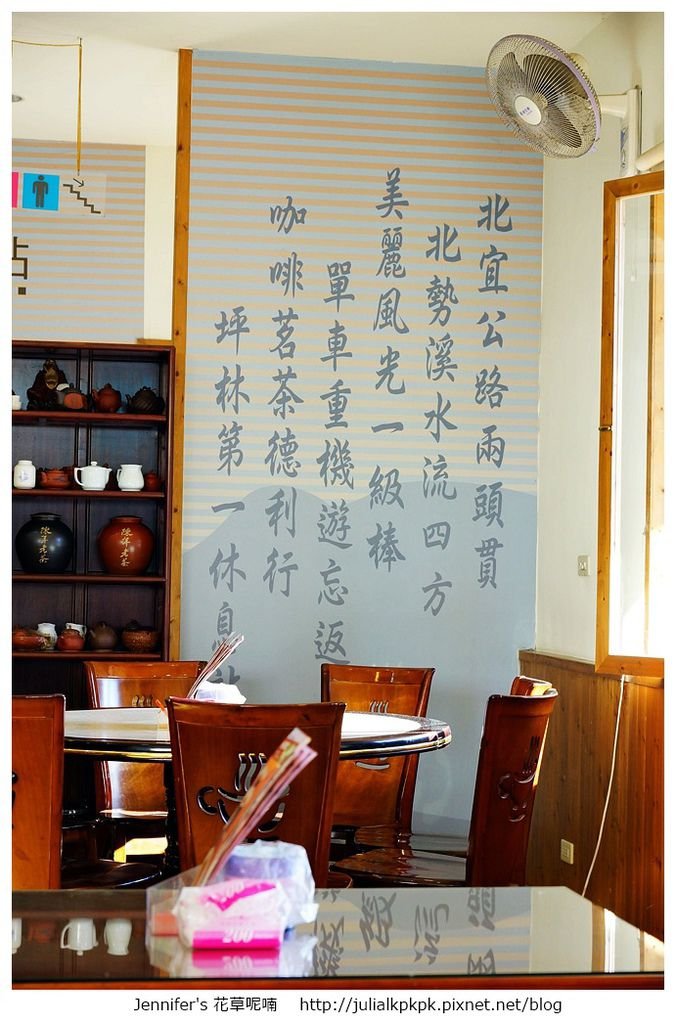 北宜公路兩頭貫
北勢溪水流四方
美麗風光一級棒
單車重機遊忘返
咖啡茗茶德利行
坪林第一休息站
站
陳年老茶
陳年老茶
200
Jennifer's 花草呢喃 http://julialkpkpk.pixnet.net/blog